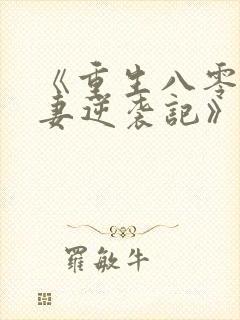 《重生八零
妻逆袭记》
羅敏牛